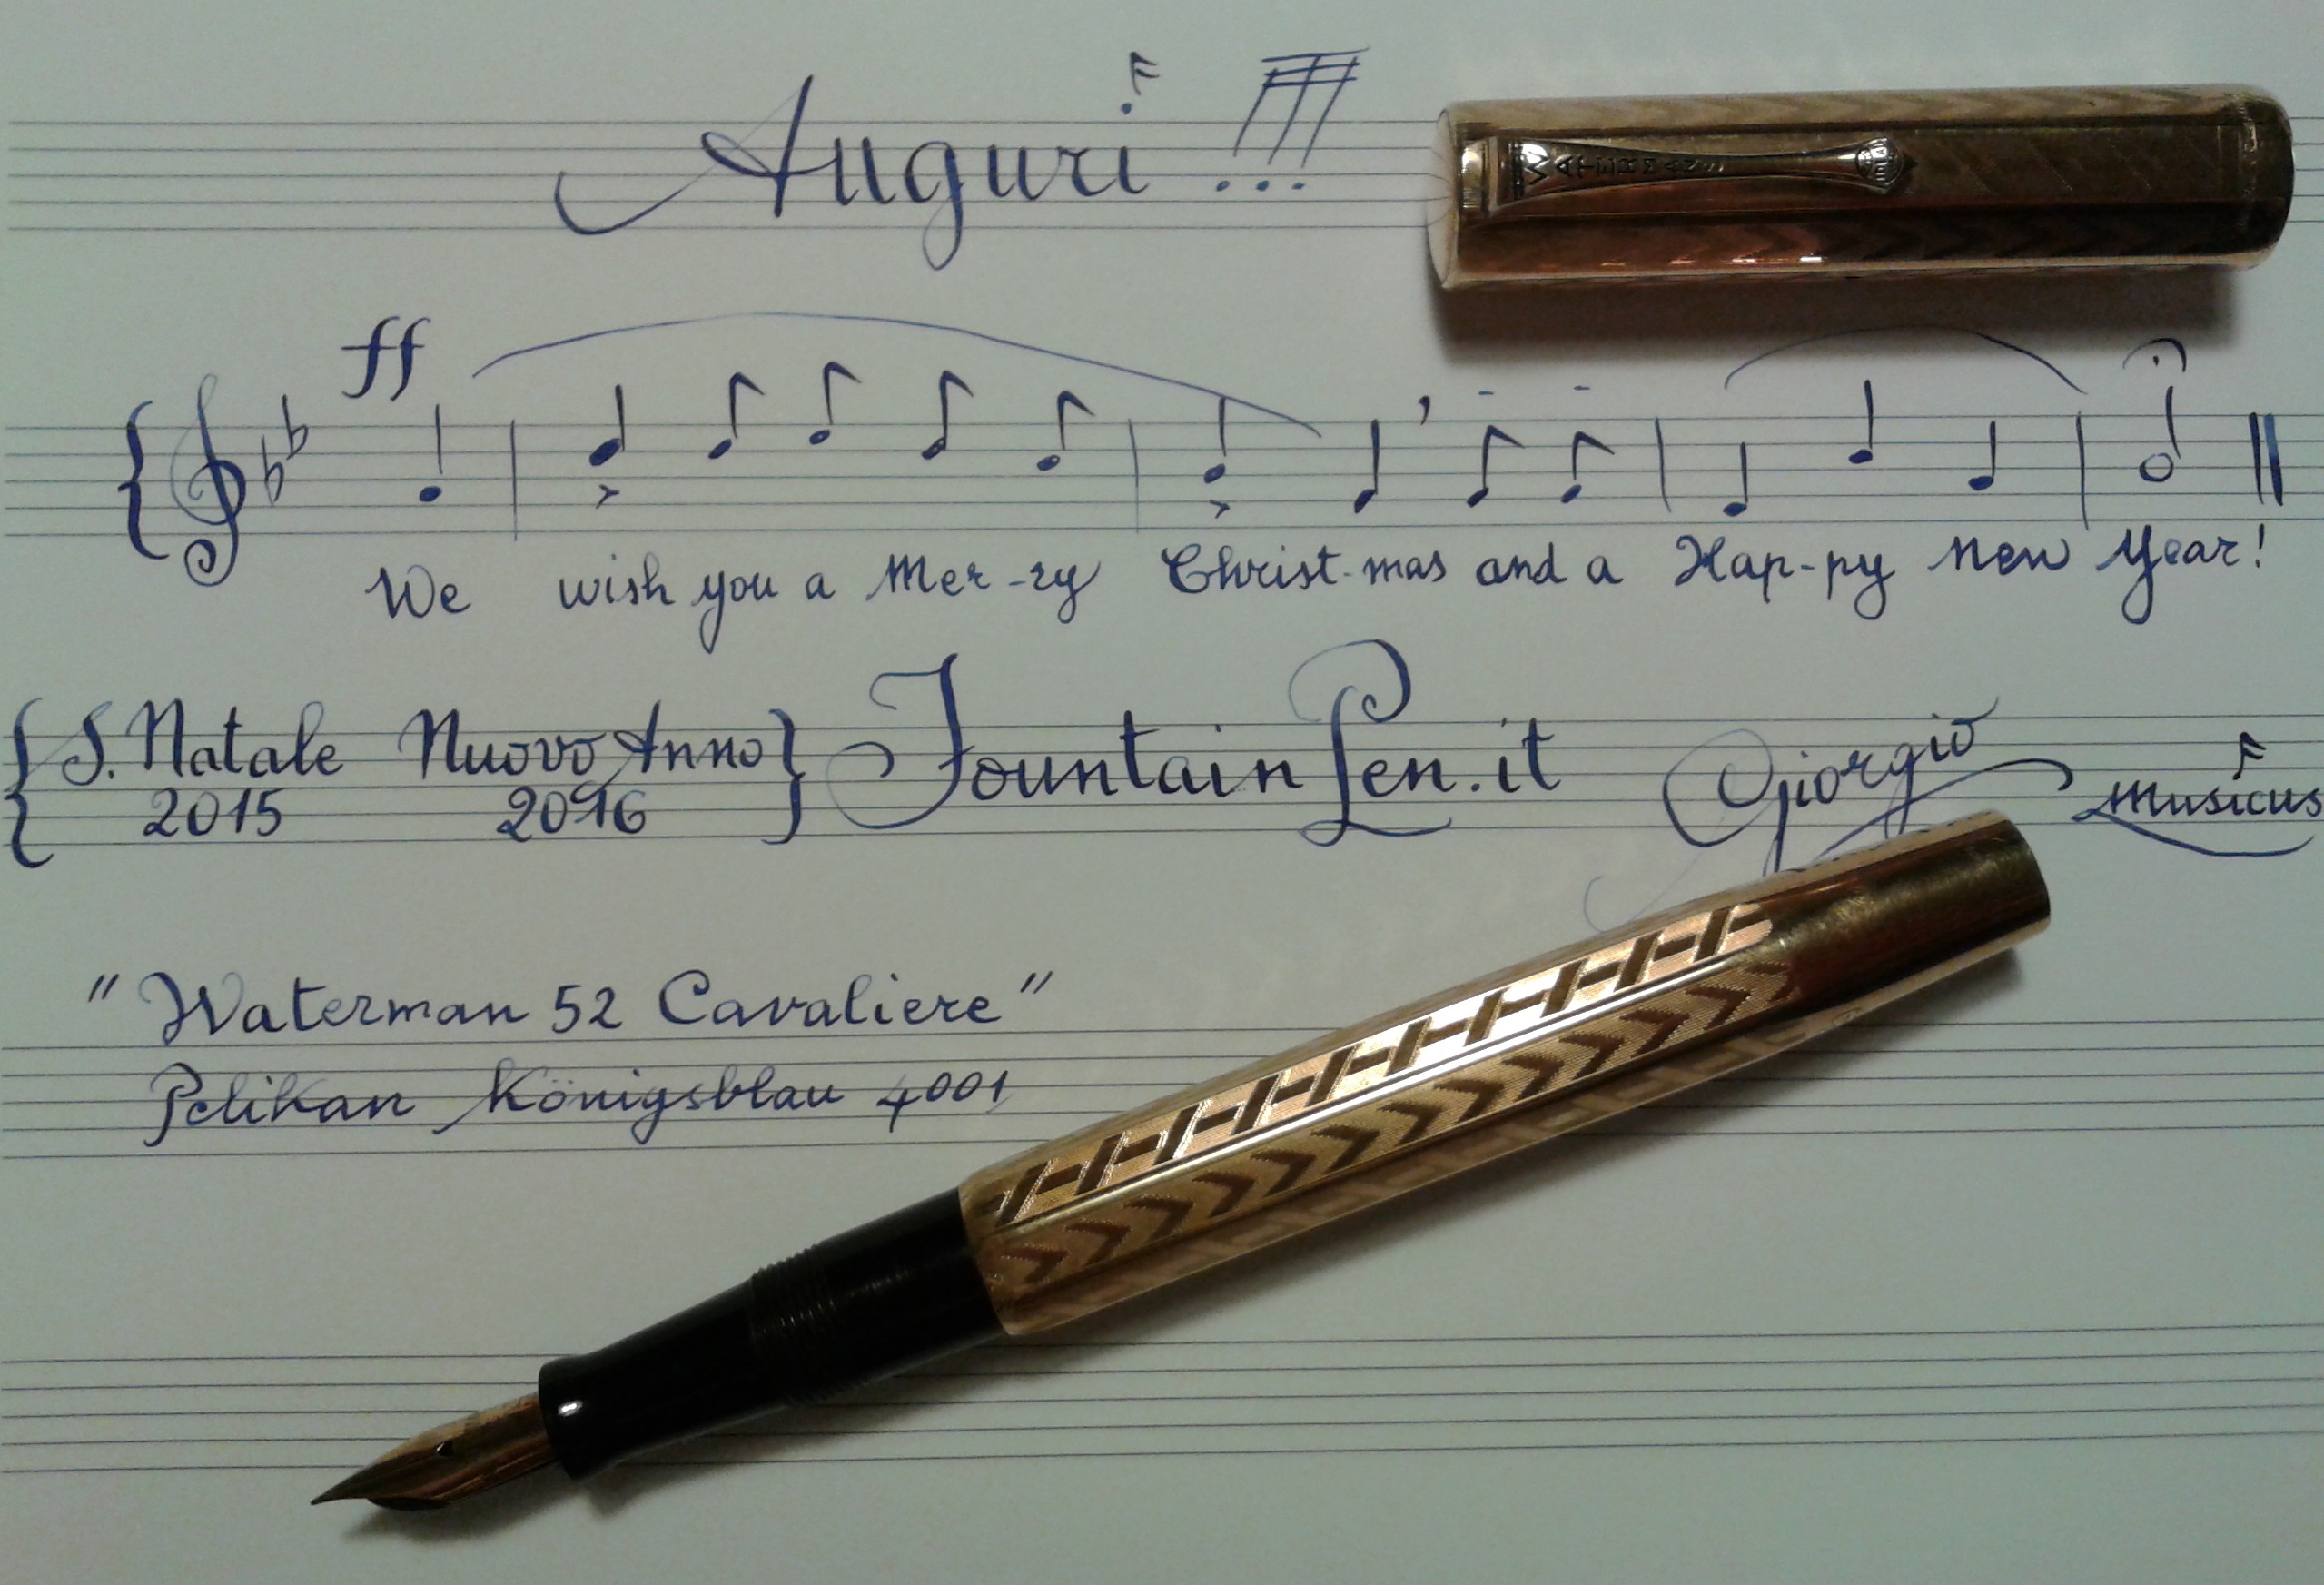 Auguri !!!
WATERMAN'S
ff
We wish you a Mer-ry Christ-mas and a Hap-py New Year!
{S. Natale Nuovo Anno} FountainPen.it Giorgio Musicus
2015 2016
"Waterman 52 Cavaliere"
Pelikan Königsblau 4001